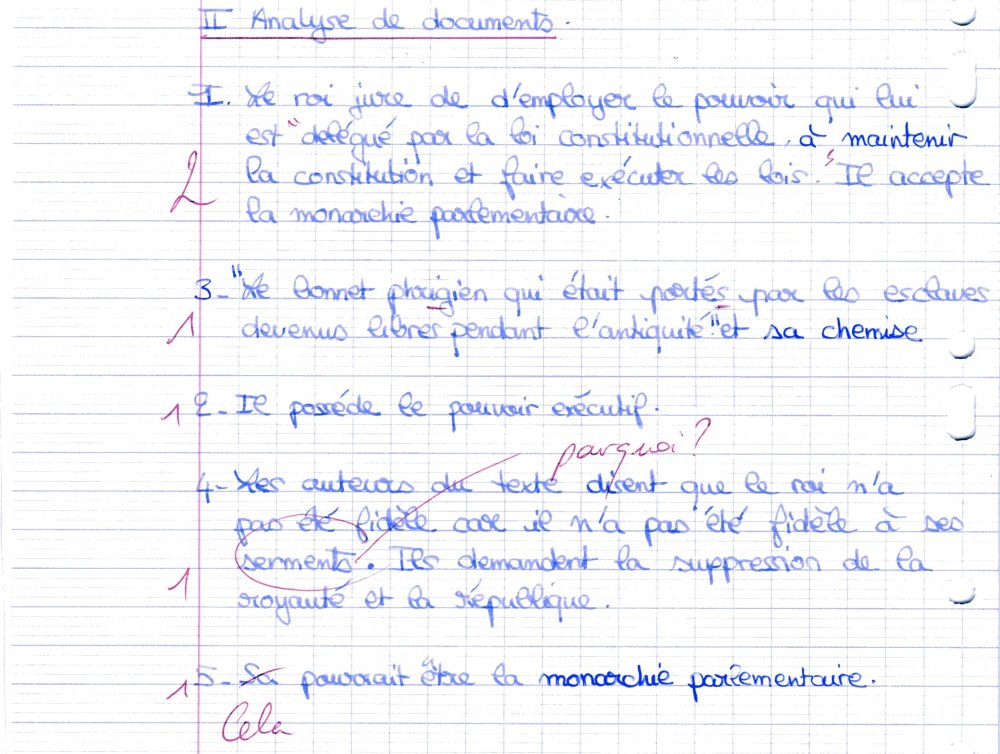 II Analyse de documents.
1. Le roi jure de d'employer le pouvoir qui lui
est "delégué par la loi constitutionnelle, à maintenir
2
la constitution et faire exécuter les lois." Il accepte
la monarchie parlementaire.
3- "Le bonnet phrigien qui était portés par les esclaves
1 devenus libres pendant l'antiquité" et sa chemise
1 2- Il posséde le pouvoir exécutif.
parquoi?
4- Les auteurs du texte disent que le roi n'a
pas été fidèle car il n'a pas été fidèle à ses
serments. Ils demandent la suppression de la
1
royauté et la république.
1 5- Sa pourrait être la monarchie parlementaire.
Cela